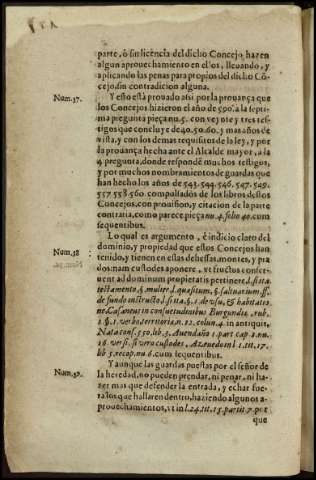 parte, ò sin licencia del dicho Concejo, hazen
algun aprouechamiento en ellos, lleuando, y
aplicando las penas para propios del dicho Cõ-
cejo, sin contradicion alguna.
Num. 37. Y esto està prouado assi por la prouança que
los Concejos hizieron el año de 590. a la septi-
ma pregunta pieça nu. 5. con veynte y tres tes-
tigos que concluye de 40. 50. 60. y mas años de
vista, y con los demas requisitos de la ley, y por
la prouança hecha ante el Alcalde mayor, a la
4. pregunta, donde respondẽ muchos testigos,
y por muchos nombramientos de guardas que
han hecho los años de 543. 544. 546. 547. 549.
557. 558. 560. compulsados de los libros destos
Concejos, con prouision, y citacion de la parte
contraria, como parece pieça nu. 4. folio 40. cum
sequentibus.
Num. 38 Lo qual es argumento, è indicio claro del
dominio, y propiedad que estos Concejos han
tenido, y tienen en estas dehessas, montes, y pra-
dos, nam custodes aponere, vt fructus conser-
uent ad dominum proprietatis pertinet, l. si ita
testamento, §. mulier, l. quæsitum, §. saltuarium ff.
de fundo instructo, l. si ita, §. 1. de vsu, & habitatio-
ne, Casaneus in consuetudenibus Burgundiæ, rub.
1. §. 1. verbo, territoria, n. 12. colun. 4. in antiquis,
Nata cons. 550. lib. 3. Auendaño 1. part. cap. 1. nu.
16. versi. si vero custodes, Azeuedo in l. 1. tit. 17.
lib. 5. recop. nu. 6. cum sequentibus.
Num. 39. Y aunque las guardas puestas por el señor de
la heredad, no pueden prendar, ni penar, ni ha-
zer mas que defender la entrada, y echar fue-
ra los que hallaren dentro, haziendo algunos a-
prouechamientos, vt in l. 24. tit. 15. partit. 7. por
que